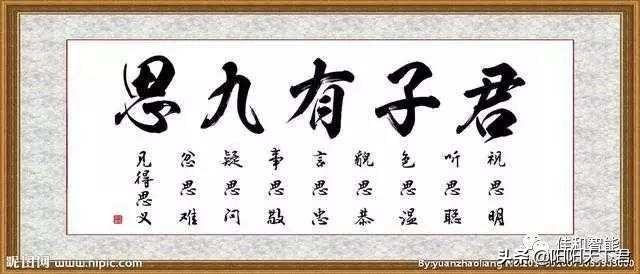 君子有九思
视思明
听思聪
色思温
貌思恭
言思忠
事思敬
疑思问
忿思难
凡得思义
昵图网 www.nipic.com
By:yuanzhaoliang
佳和智能
头条@阳阳天下君